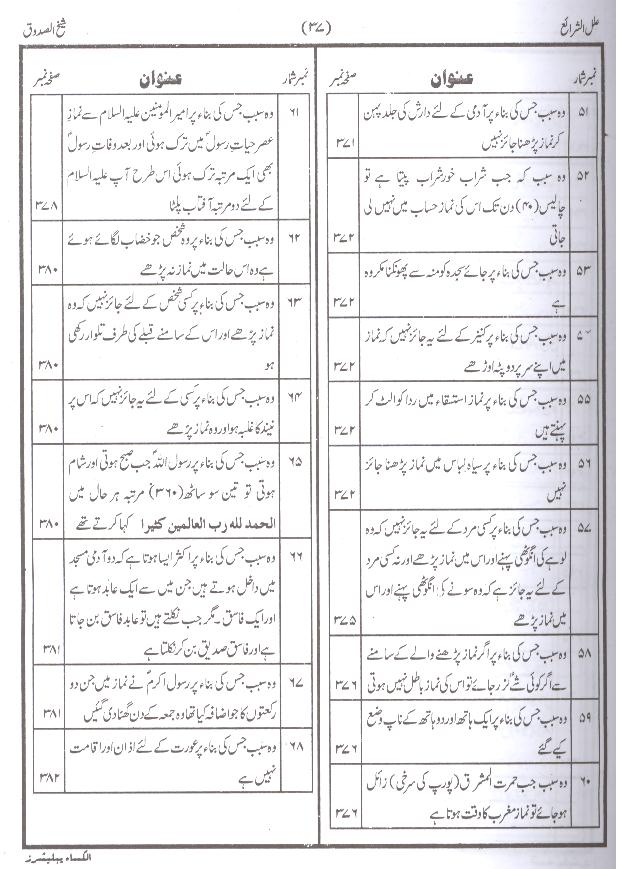 علل الشرائع
(۳۷)
شیخ الصدوق
نمبر شمار
عنوان
صفحہ نمبر
۵۱
وہ سبب جس کی بناء پر آدمی کے لئے دارش کی جلد پہن
کر نماز پڑھنا جائز نہیں
۳۷۱
۵۲
وہ سبب کہ جب شراب خور شراب پیتا ہے تو
چالیس (۴۰) دن تک اس کی نماز حساب میں نہیں لی
جاتی
۳۷۲
۵۳
وہ سبب جس کی بناء پر جائے سجدہ کو منہ سے پھونکنا مکروہ
ہے
۳۷۲
وہ سبب جس کی بناء پر کنیز کے لئے یہ جائز نہیں کہ نماز
میں اپنے سر پر دوپٹہ اوڑھے
۳۷۲
۵۵
وہ سبب جس کی بناء پر نماز استسقاء میں ردا کو الٹ کر
پہنتے ہیں
۳۷۲
۵۶
وہ سبب جس کی بناء پر سیاہ لباس میں نماز پڑھنا جائز
نہیں
۳۷۲
۵۷
وہ سبب جس کی بناء پر کسی مرد کے لئے یہ جائز نہیں کہ وہ
لوہے کی انگوٹھی پہنے اور اس میں نماز پڑھے اور نہ کسی مرد
کے لئے یہ جائز ہے کہ وہ سونے کی انگوٹھی پہنے اور اس
میں نماز پڑھے
۳۷۵
۵۸
وہ سبب جس کی بناء پر اگر نماز پڑھنے والے کے سامنے
سے اگر کوئی شے گزر جائے تو اس کی نماز باطل نہیں ہوتی
۳۷۶
۵۹
وہ سبب جس کی بناء پر ایک ہاتھ اور دو ہاتھ کے ناپ وضع
کیے گئے
۳۷۶
۶۰
وہ سبب جب حمرت المشرق (پورب کی سرخی) زائل
ہو جائے تو نماز مغرب کا وقت ہوتا ہے
۳۷۶
نمبر شمار
عنوان
صفحہ نمبر
۶۱
وہ سبب جس کی بناء پر امیر المومنین علیہ السلام سے نماز
عصر حیات رسولؐ میں ترک ہوئی اور بعد وفات رسولؐ
بھی ایک مرتبہ ترک ہوئی اس طرح آپ علیہ السلام
کے لئے دو مرتبہ آفتاب پلٹا
۳۷۸
۶۲
وہ سبب جس کی بناء پر وہ شخص جو خضاب لگائے ہوئے
ہے وہ اس حالت میں نماز نہ پڑھے
۳۸۰
۶۳
وہ سبب جس کی بناء پر کسی شخص کے لئے جائز نہیں کہ وہ
نماز پڑھے اور اس کے سامنے قبلے کی طرف تلوار رکھی
ہو
۳۸۰
۶۴
وہ سبب جس کی بناء پر کسی کے لئے یہ جائز نہیں کہ اس پر
نیند کا غلبہ ہو اور وہ نماز پڑھے
۳۸۰
۶۵
وہ سبب جس کی بناء پر رسول اللہؐ جب صبح ہوتی اور شام
ہوتی تو تین سو ساٹھ (۳۶۰) مرتبہ ہر حال میں
الحمد لله رب العالمين كثيرا کہا کرتے تھے
۳۸۰
۶۶
وہ سبب جس کی بناء پر اکثر ایسا ہوتا ہے کہ دو آدمی مسجد
میں داخل ہوتے ہیں جن میں سے ایک عابد ہوتا ہے
اور ایک فاسق ۔ مگر جب نکلتے ہیں تو عابد فاسق بن جاتا
ہے اور فاسق صدیق بن کر نکلتا ہے
۳۸۱
۶۷
وہ سبب جس کی بناء پر رسول اکرمؐ نے نماز میں جن دو
رکعتوں کا جو اضافہ کیا تھا وہ جمعہ کے دن گھٹا دی گئیں
۳۸۱
۶۸
وہ سبب جس کی بناء پر عورت کے لئے اذان اور اقامت
نہیں ہے
۳۸۲
الکساء پبلیشرز